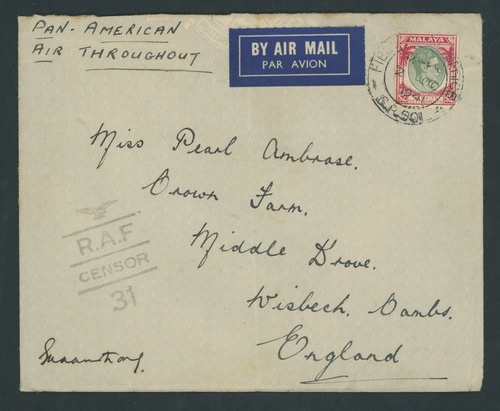 PAN-AMERICAN
AIR THROUGHOUT
BY AIR MAIL
PAR AVION
MALAYA
Miss Pearl Ambrose.
Crown Farm.
Middle Drove.
Wisbech. Cambs.
England
R.A.F
CENSOR
31